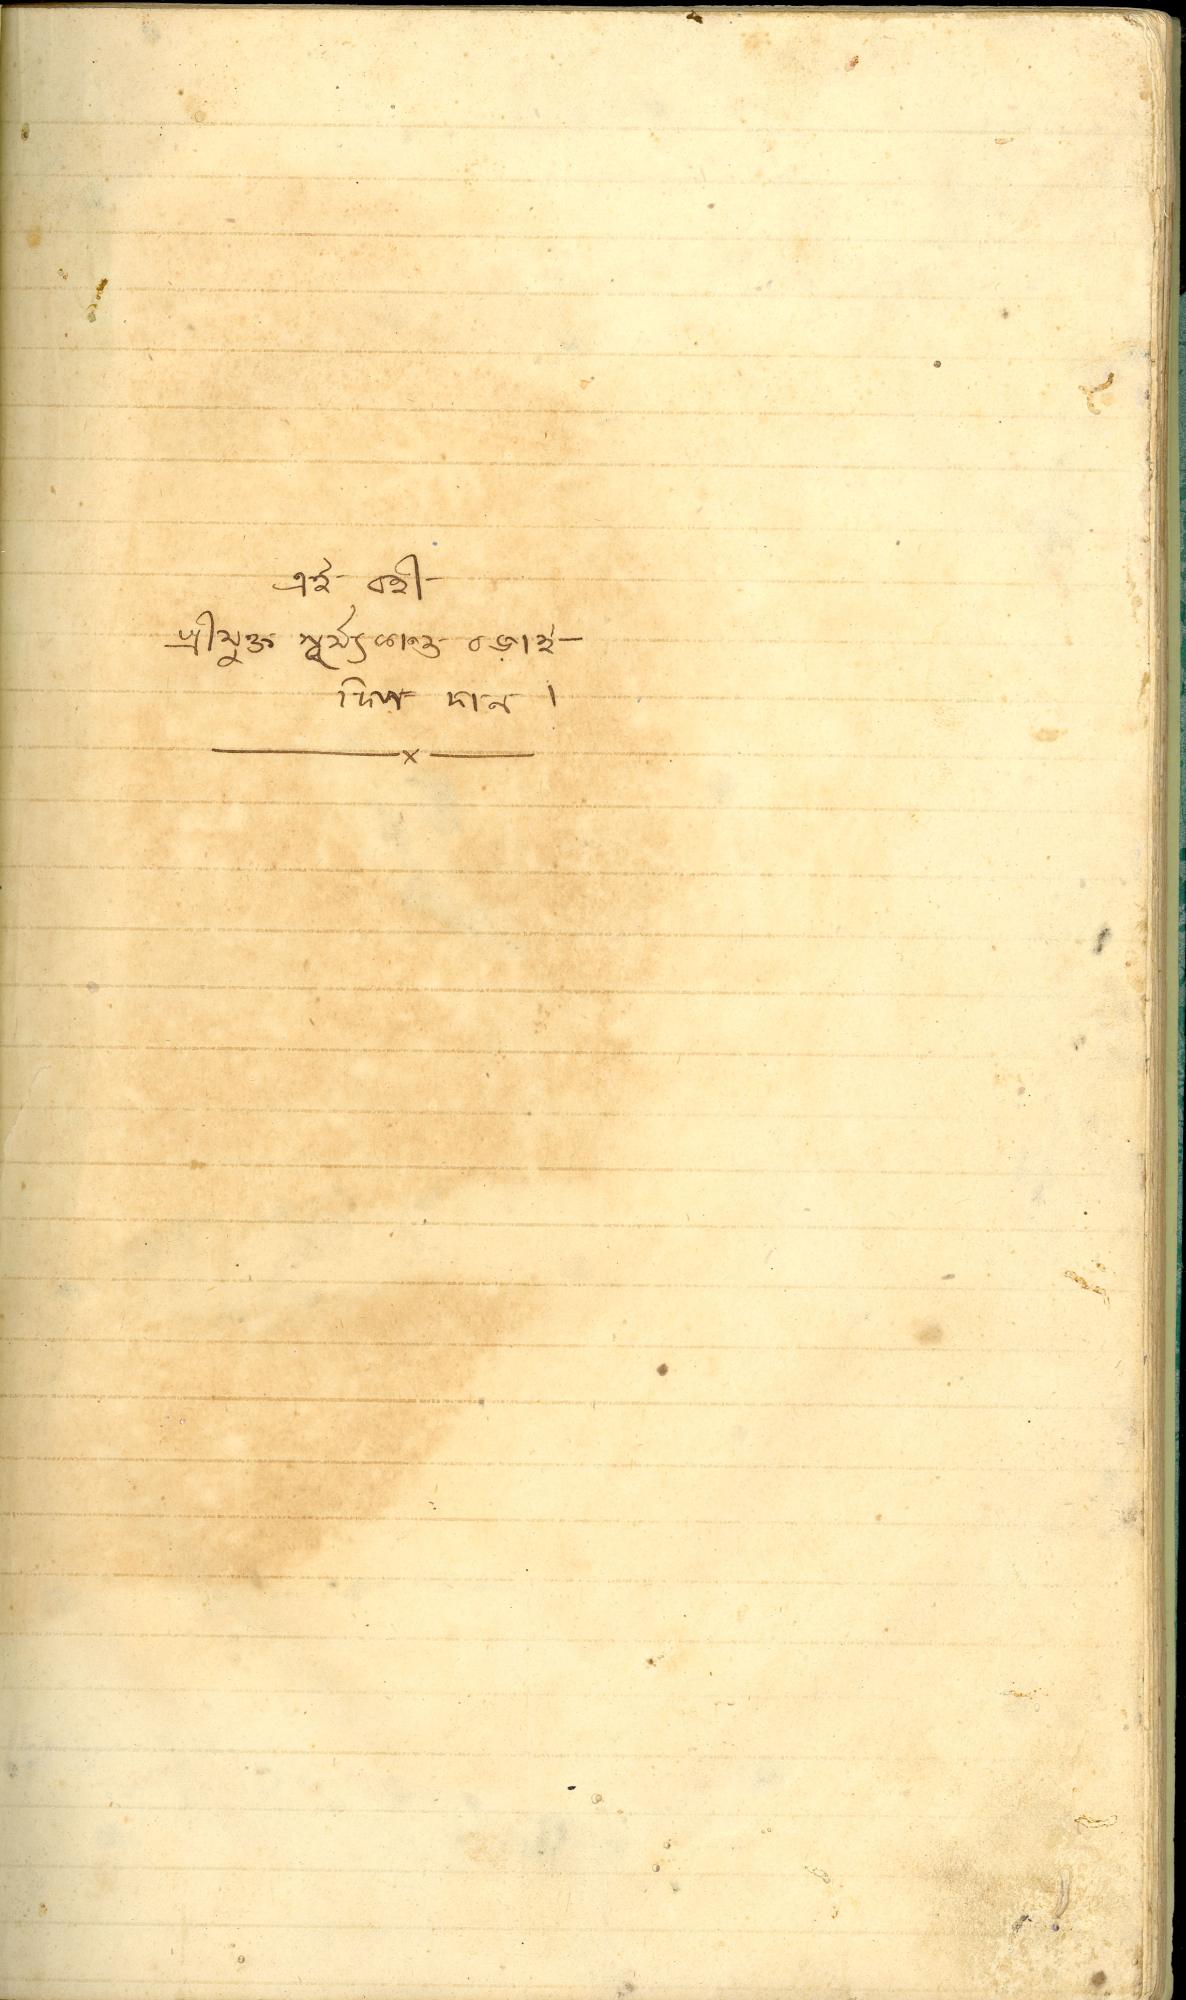 এই বহী
শ্ৰীযুক্ত সূৰ্য্যকান্ত ৰজাই
দিলা দান ।